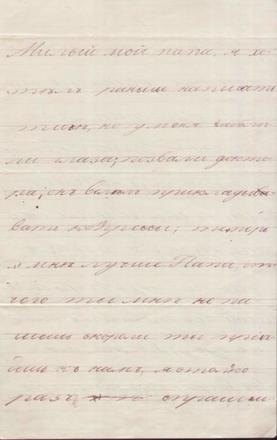 Милый мой папа, я хо
тѣлъ раньше написать
но у меня забалѣ
ли глаза; позвали докто
ра; онъ велѣлъ прикладыва
вать компрессы; теперь
мнѣ лучше. Папа, от
чего ты мнѣ не пи
шешь скоро ли ты прiѣ
дешь къ намъ, я
разъ спрашив